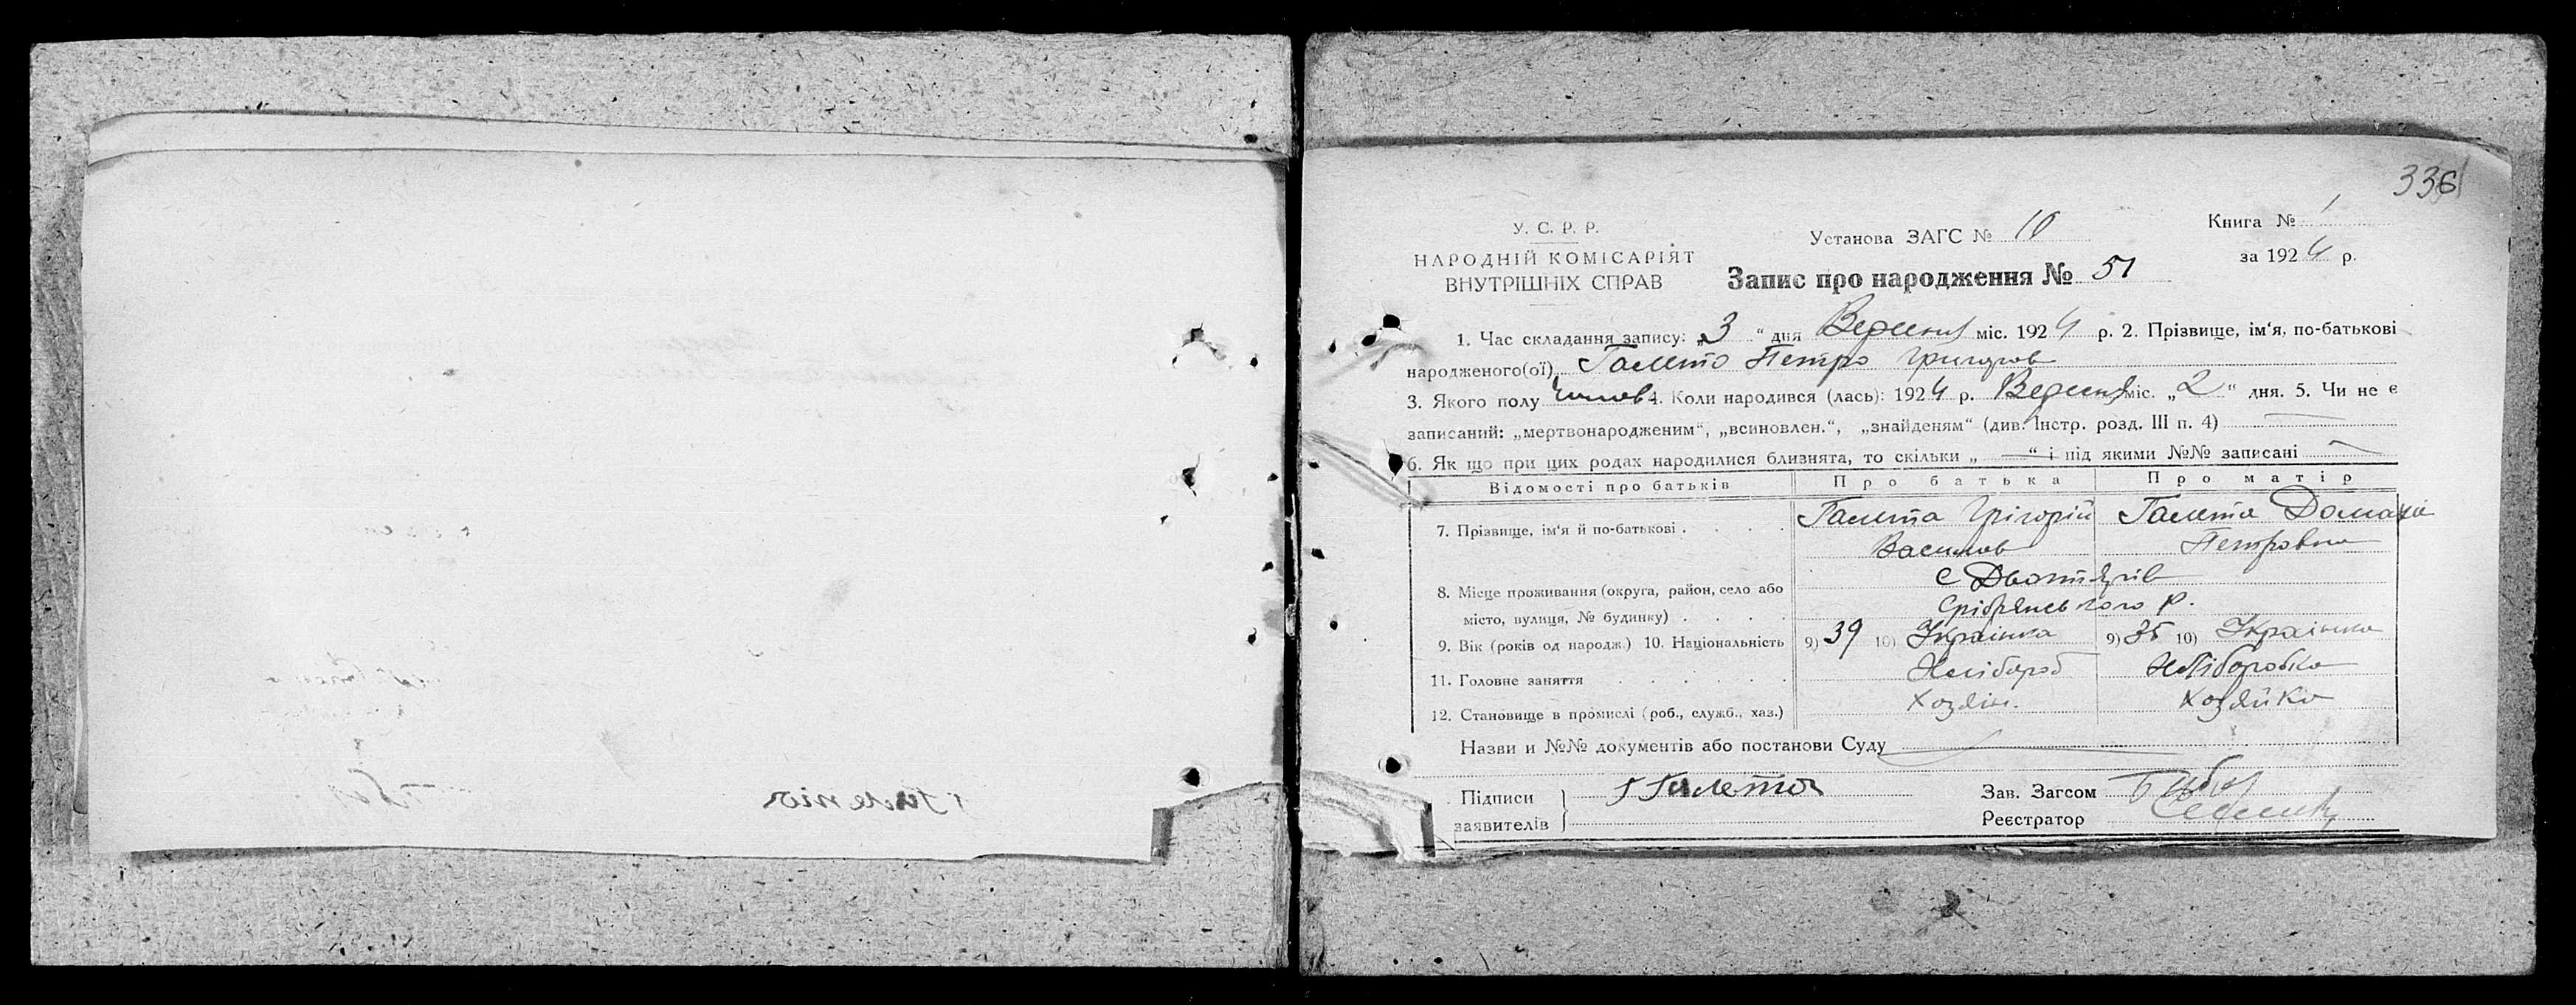 336
У. С. Р. Р.
НАРОДНІЙ КОМІСАРІЯТ
ВНУТРІШНІХ СПРАВ
Установа ЗАГС № 10
Книга № 1
за 1924 р.
Запис про народження № 51
1. Час складання запису: „3“ дня Вересня міс. 1924 р. 2. Прізвище, ім‘я, по-батькові
народженого(ої) Галето Петро Григоров
3. Якого полу 4. Коли народився (лась): 1924 р. Вересня міс. „2“ дня. 5. Чи не є
записаний: „мертвонародженим“, „всиновлен.“, „знайденям“ (див. Інстр. розд. III п. 4)
6. Як що при цих родах народилися близнята, то скільки „ — “ і під якими №№ записані —
Відомості про батьків Про батька Про матір
7. Прізвище, ім‘я й по-батькові . . . . Галета Грігорій Галета Домаха
Василов Петровна
8. Місце проживання (округа, район, село або
місто, вулиця, № будинку) . . . .
с
Срібрянського р.
9. Вік (років од народж.) 10. Національність 9) 39 10) Українка 9) 35 10) Українка
11. Головне заняття . . . . . . Хлібороб Хліборобка
12. Становище в промислі (роб., служб., хаз.) Хозяін. Хозяйка
Назви и №№ документів або постанови Суду
Підписи
заявителів
Г Галета
Зав. Загсом
Реєстратор